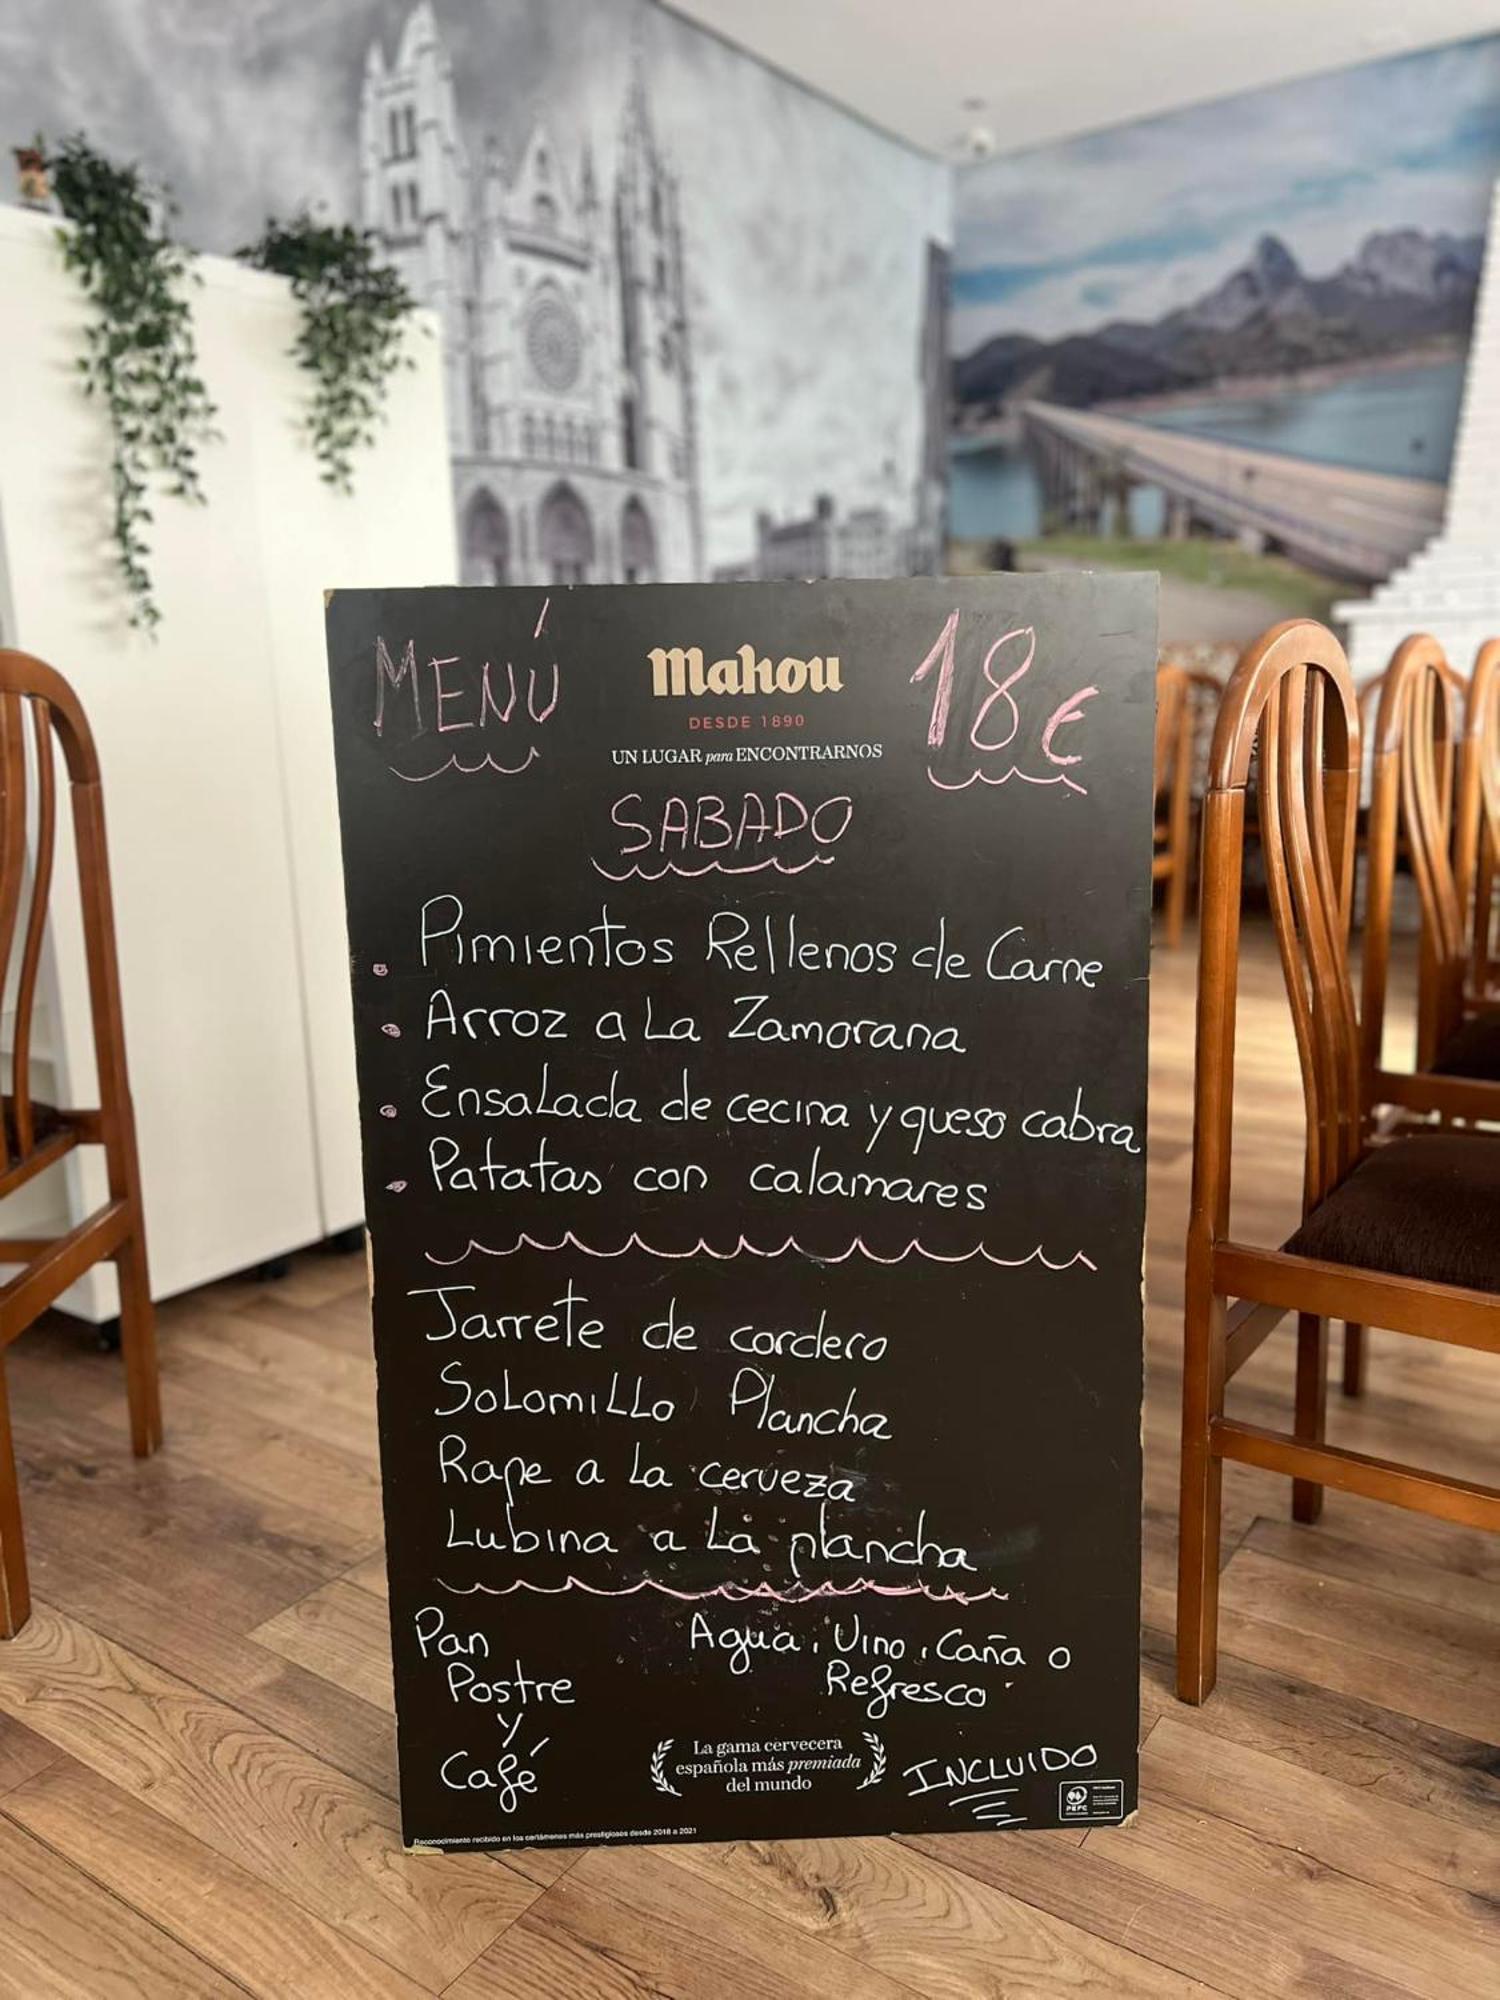 MENÚ
Mahou
18€
DESDE 1890
UN LUGAR para ENCONTRARNOS
SABADO
Pimientos Rellenos de Carne
Arroz a La Zamorana
Ensalada de cecina y queso cabra
Patatas con calamares
Jarrete de cordero
Solomillo Plancha
Rape a La cerveza
Lubina a La plancha
Pan
Agua, Vino, Caña o
Postre
Refresco
y
Café
La gama cervecera
española más premiada
del mundo
INCLUIDO
PEFC
Reconocimiento recibido en los certámenes más prestigiosos desde 2018 a 2021